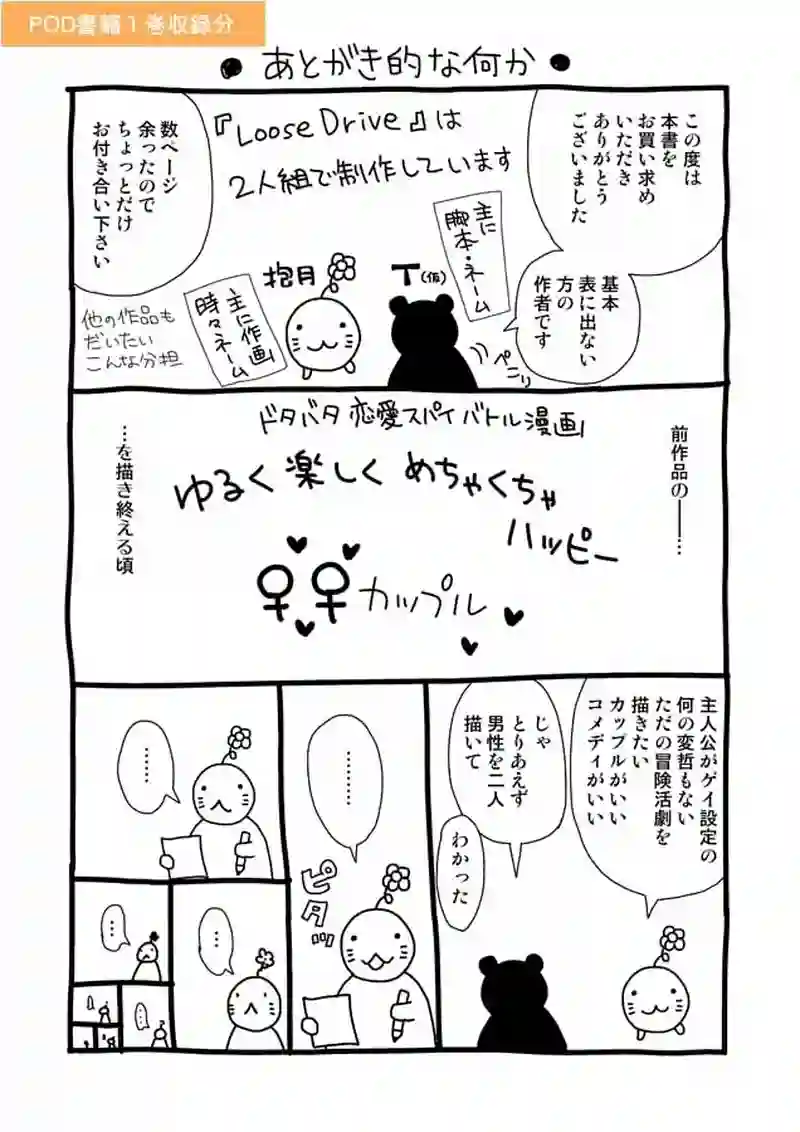 POD書籍1巻収録分
●あとがき的な何か●
この度は
本書を
お買い求め
いただき
ありがとう
ございました
基本
表に出ない
方の
作者です
『Loose Drive』は
2人組で制作しています
数ページ
余ったので
ちょっとだけ
お付き合い下さい
主に
脚本・ネーム
T(仮)
ペニリ
抱月
主に作画
時々ネーム
他の作品も
だいたい
こんな分担
前作品の──…
ドタバタ恋愛スパイバトル漫画
ゆるく楽しくめちゃくちゃ
ハッピー
♀♀カップル
…を描き終える頃
主人公がゲイ設定の
何の変哲もない
ただの冒険活劇を
描きたい
カップルがいい
コメディがいい
じゃ
とりあえず
男性を二人
描いて
わかった
………
ピタッ
……
…
…
…